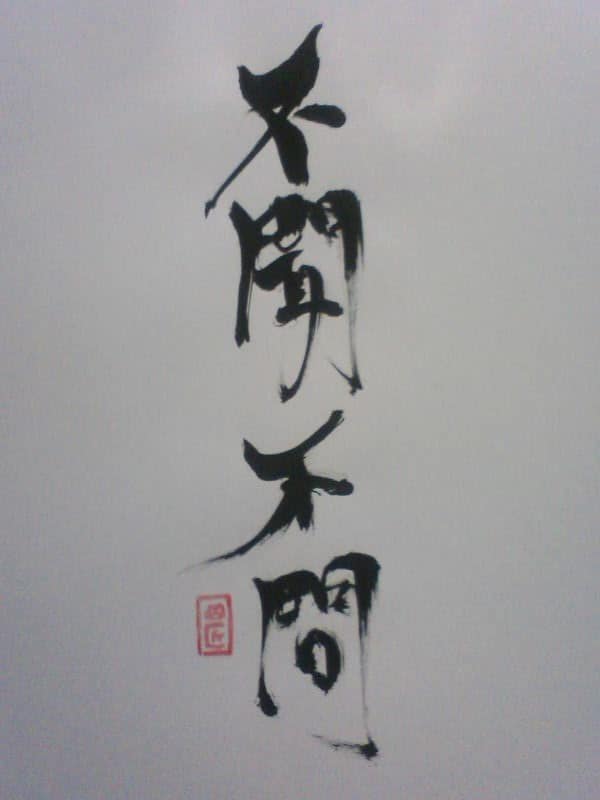 不聞不問